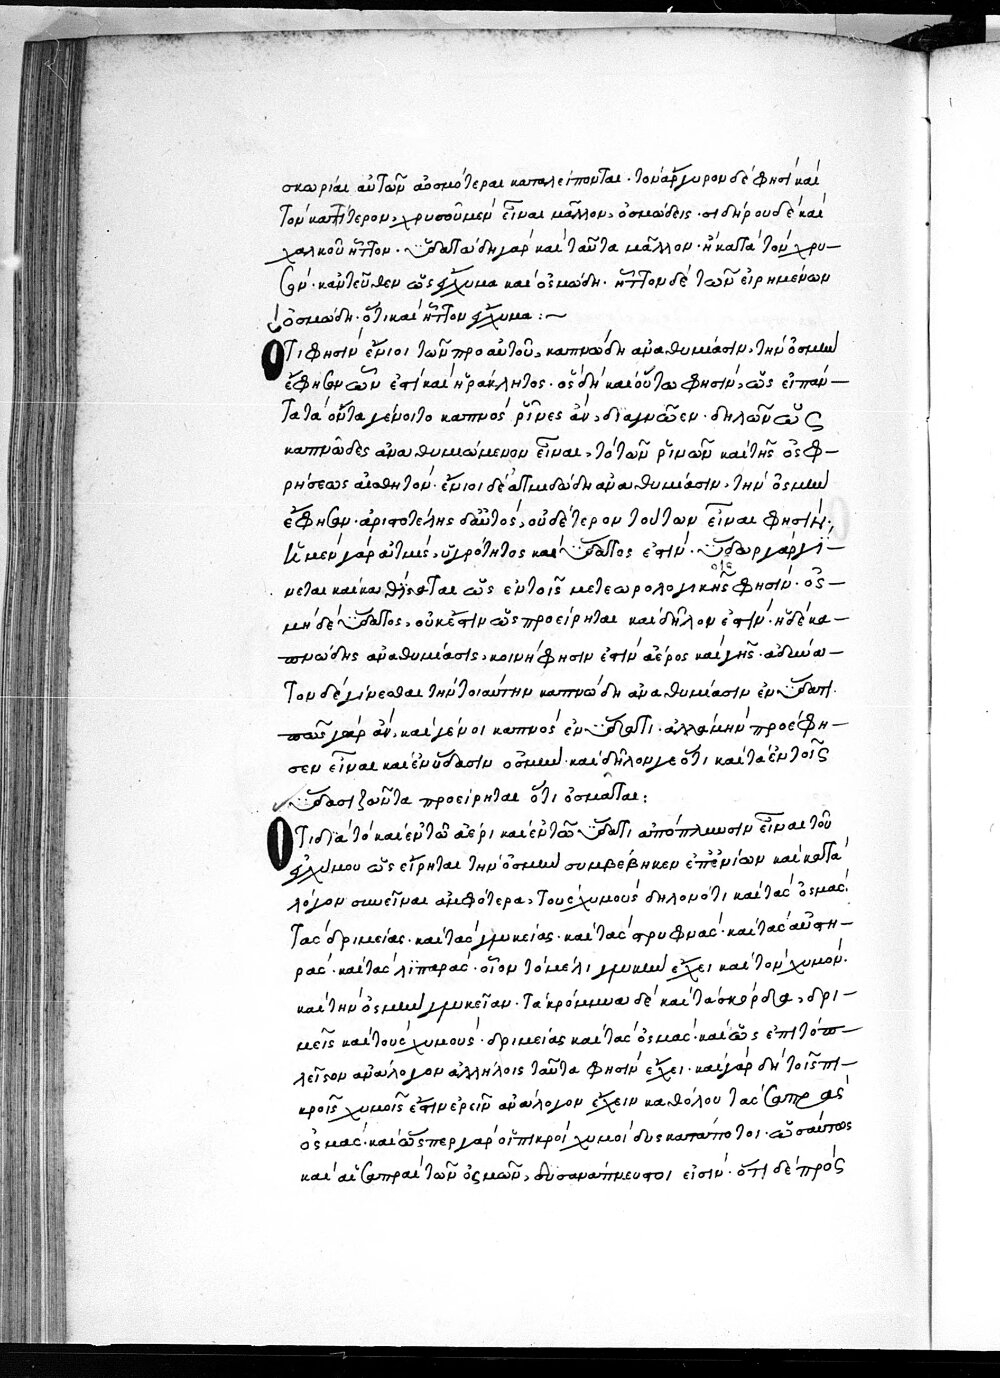 σκωρίαι αὐτῶν ἀοσμότεραι καταλείπονται· τὸν ἄργυρον δέ φησὶ καὶ
τὸν καττίτερον, χρυσοῦ μὲν εἶναι μᾶλλον, ὀσμώδεις· σιδήρου δὲ καὶ
χαλκοῦ ἧττον· ὑδατώδη γὰρ καὶ ταῦτα μᾶλλον· ἢ κατὰ τὸν χρυ-
σόν· κἀντεῦθεν ὡς ἔγχυμα καὶ ὀσμώδη· ἧττον δὲ τῶν εἰρημένων
ὀσμώδη· ὅτι καὶ ἧττον ἔγχυμα :~
Ὅτι φησὶν ἔνιοι τῶν πρὸ αὐτοῦ, καπνώδη ἀναθυμίασιν, τὴν ὀσμὴν
ἔφησαν ὧν ἐστὶ καὶ ἡράκλητος· ὃς δὴ καὶ οὕτω φησὶν, ὡς εἰ πάν-
τα τὰ ὄντα γένοιτο καπνὸς ῥῖνες ἂν, διαγνῶεν· δηλῶν ὡς
καπνῶδες ἀναθυμιώμενον εἶναι, τὸ τῶν ῥινῶν καὶ τῆς ὀσφ-
ρήσεως αἰσθητόν· ἔνιοι δὲ ἀτμιδώδη ἀναθυμίασιν, τὴν ὀσμὴν
ἔφησαν· ἀριστοτέλης δαὐτὸς, οὐδέτερον τούτων εἶναι φησίν·
ἡ μὲν γὰρ ἀτμὶς, ὑγρότητος καὶ ὕδατος ἐστίν· ὕδωρ γὰρ γί-
νεται καὶ καθίσταται ὡς ἐν τοῖς μετεωρολογικοῖς φησίν· ὀσ-
μὴ δὲ ὕδατος, οὐκ ἔστιν ὡς προείρηται καὶ δῆλον ἐστίν· ἡ δὲ κα-
πνώδης ἀναθυμίασις, κοινή φησιν ἐστὶν ἀέρος καὶ γῆς· ἀδύνα-
τον δὲ γίνεσθαι τὴν τοιαύτην καπνώδη ἀναθυμίασιν ἐν ὕδατι·
πῶς γὰρ ἂν, καὶ γένοι καπνὸς ἐν ὕδατι· ἀλλὰ μὴν προέφη-
σεν εἶναι καὶ ἐν ὕδασιν ὀσμὴν· καὶ δῆλον γε ὅτι καὶ τὰ ἐν τοῖς
ὕδασι ζῶντα προείρηται ὅτι ὀσμᾶται :
Ὅτι διὰ τὸ καὶ ἐν τῶ ἀέρι καὶ ἐν τῶ ὕδατι ἀπόπλυσιν εἶναι τοῦ
ἐγχύμου ὡς εἴρηται τὴν ὀσμὴν συμβέβηκεν ἐπ' ἐνίων καὶ κατὰ
λόγον συνεῖναι ἀμφότερα, τοὺς χυμοὺς δηλονότι καὶ τὰς ὀσμάς·
τὰς δριμείας· καὶ τὰς γλυκείας· καὶ τὰς στρυφνάς· καὶ τὰς αὐστη-
ράς· καὶ τὰς λιπαράς· οἷον τὸ μέλι γλυκὺν ἔχει καὶ τὸν χυμόν·
καὶ τὴν ὀσμὴν γλυκεῖαν· τὰ κρόμμυα δὲ καὶ τὰ σκόρδα, δρι-
μεῖς καὶ τοὺς χυμούς· δριμείας καὶ τὰς ὀσμάς· καὶ ὡς ἐπιτοπ-
λεῖστον ἀνάλογον ἀλλήλοις ταῦτα φησὶν ἔχει· καὶ γὰρ δὴ τοῖς πι-
κροῖς χυμοῖς ἔστιν ἐρεῖν ἀνάλογον ἔχειν καθόλου τὰς σαπρὰς
ὀσμάς· καὶ ὥσπερ γὰρ οἱ πικροὶ χυμοὶ δυσκατάποτοι· ὡσαύτως
καὶ αἱ σαπραὶ τῶν ὀσμῶν, δυσανάπνευστοι εἰσίν· ὅτι δὲ πρὸς